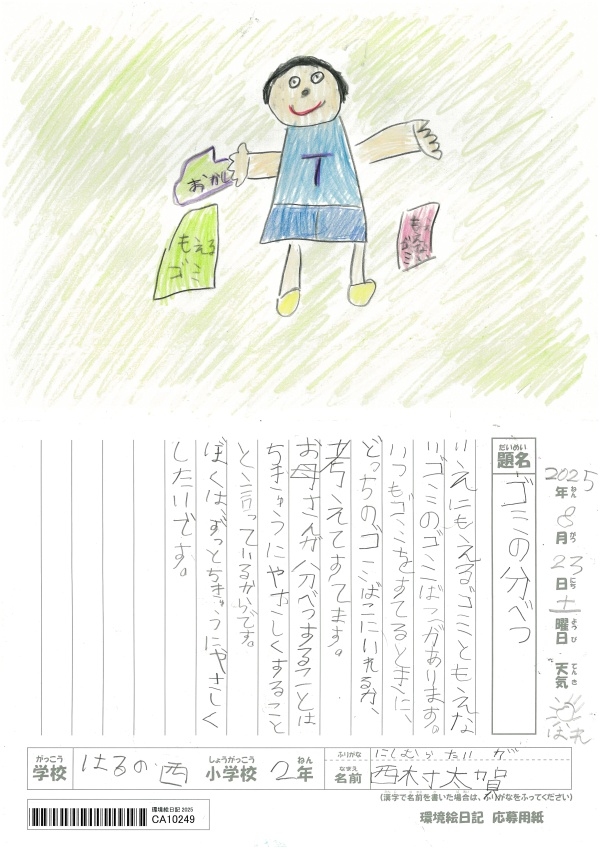 おかし
T
もえる
ゴミ
もえない
ゴミ
2025年ねん8月がつ23日にち土曜日ようび 天気てんき はれ
題名だいめい ゴミの分べつ
いえにもえるゴミともえな
いゴミのゴミばこがあります。
いつもゴミをすてるときに、
どっちのゴミばこにいれるか、
考えてすてます。
お母さんが分べつすることは
ちきゅうにやさしくすること
と言っているからです。
ぼくは、ずっとちきゅうにやさしく
したいです。
学校がっこう はるの西 小学校しょうがっこう 2年ねん
ふりがな にしむら たいが
名前なまえ 西村太賀
(漢字で名前を書いた場合は、ふりがなをふってください)
環境絵日記 2025
CA10249
環境絵日記 応募用紙